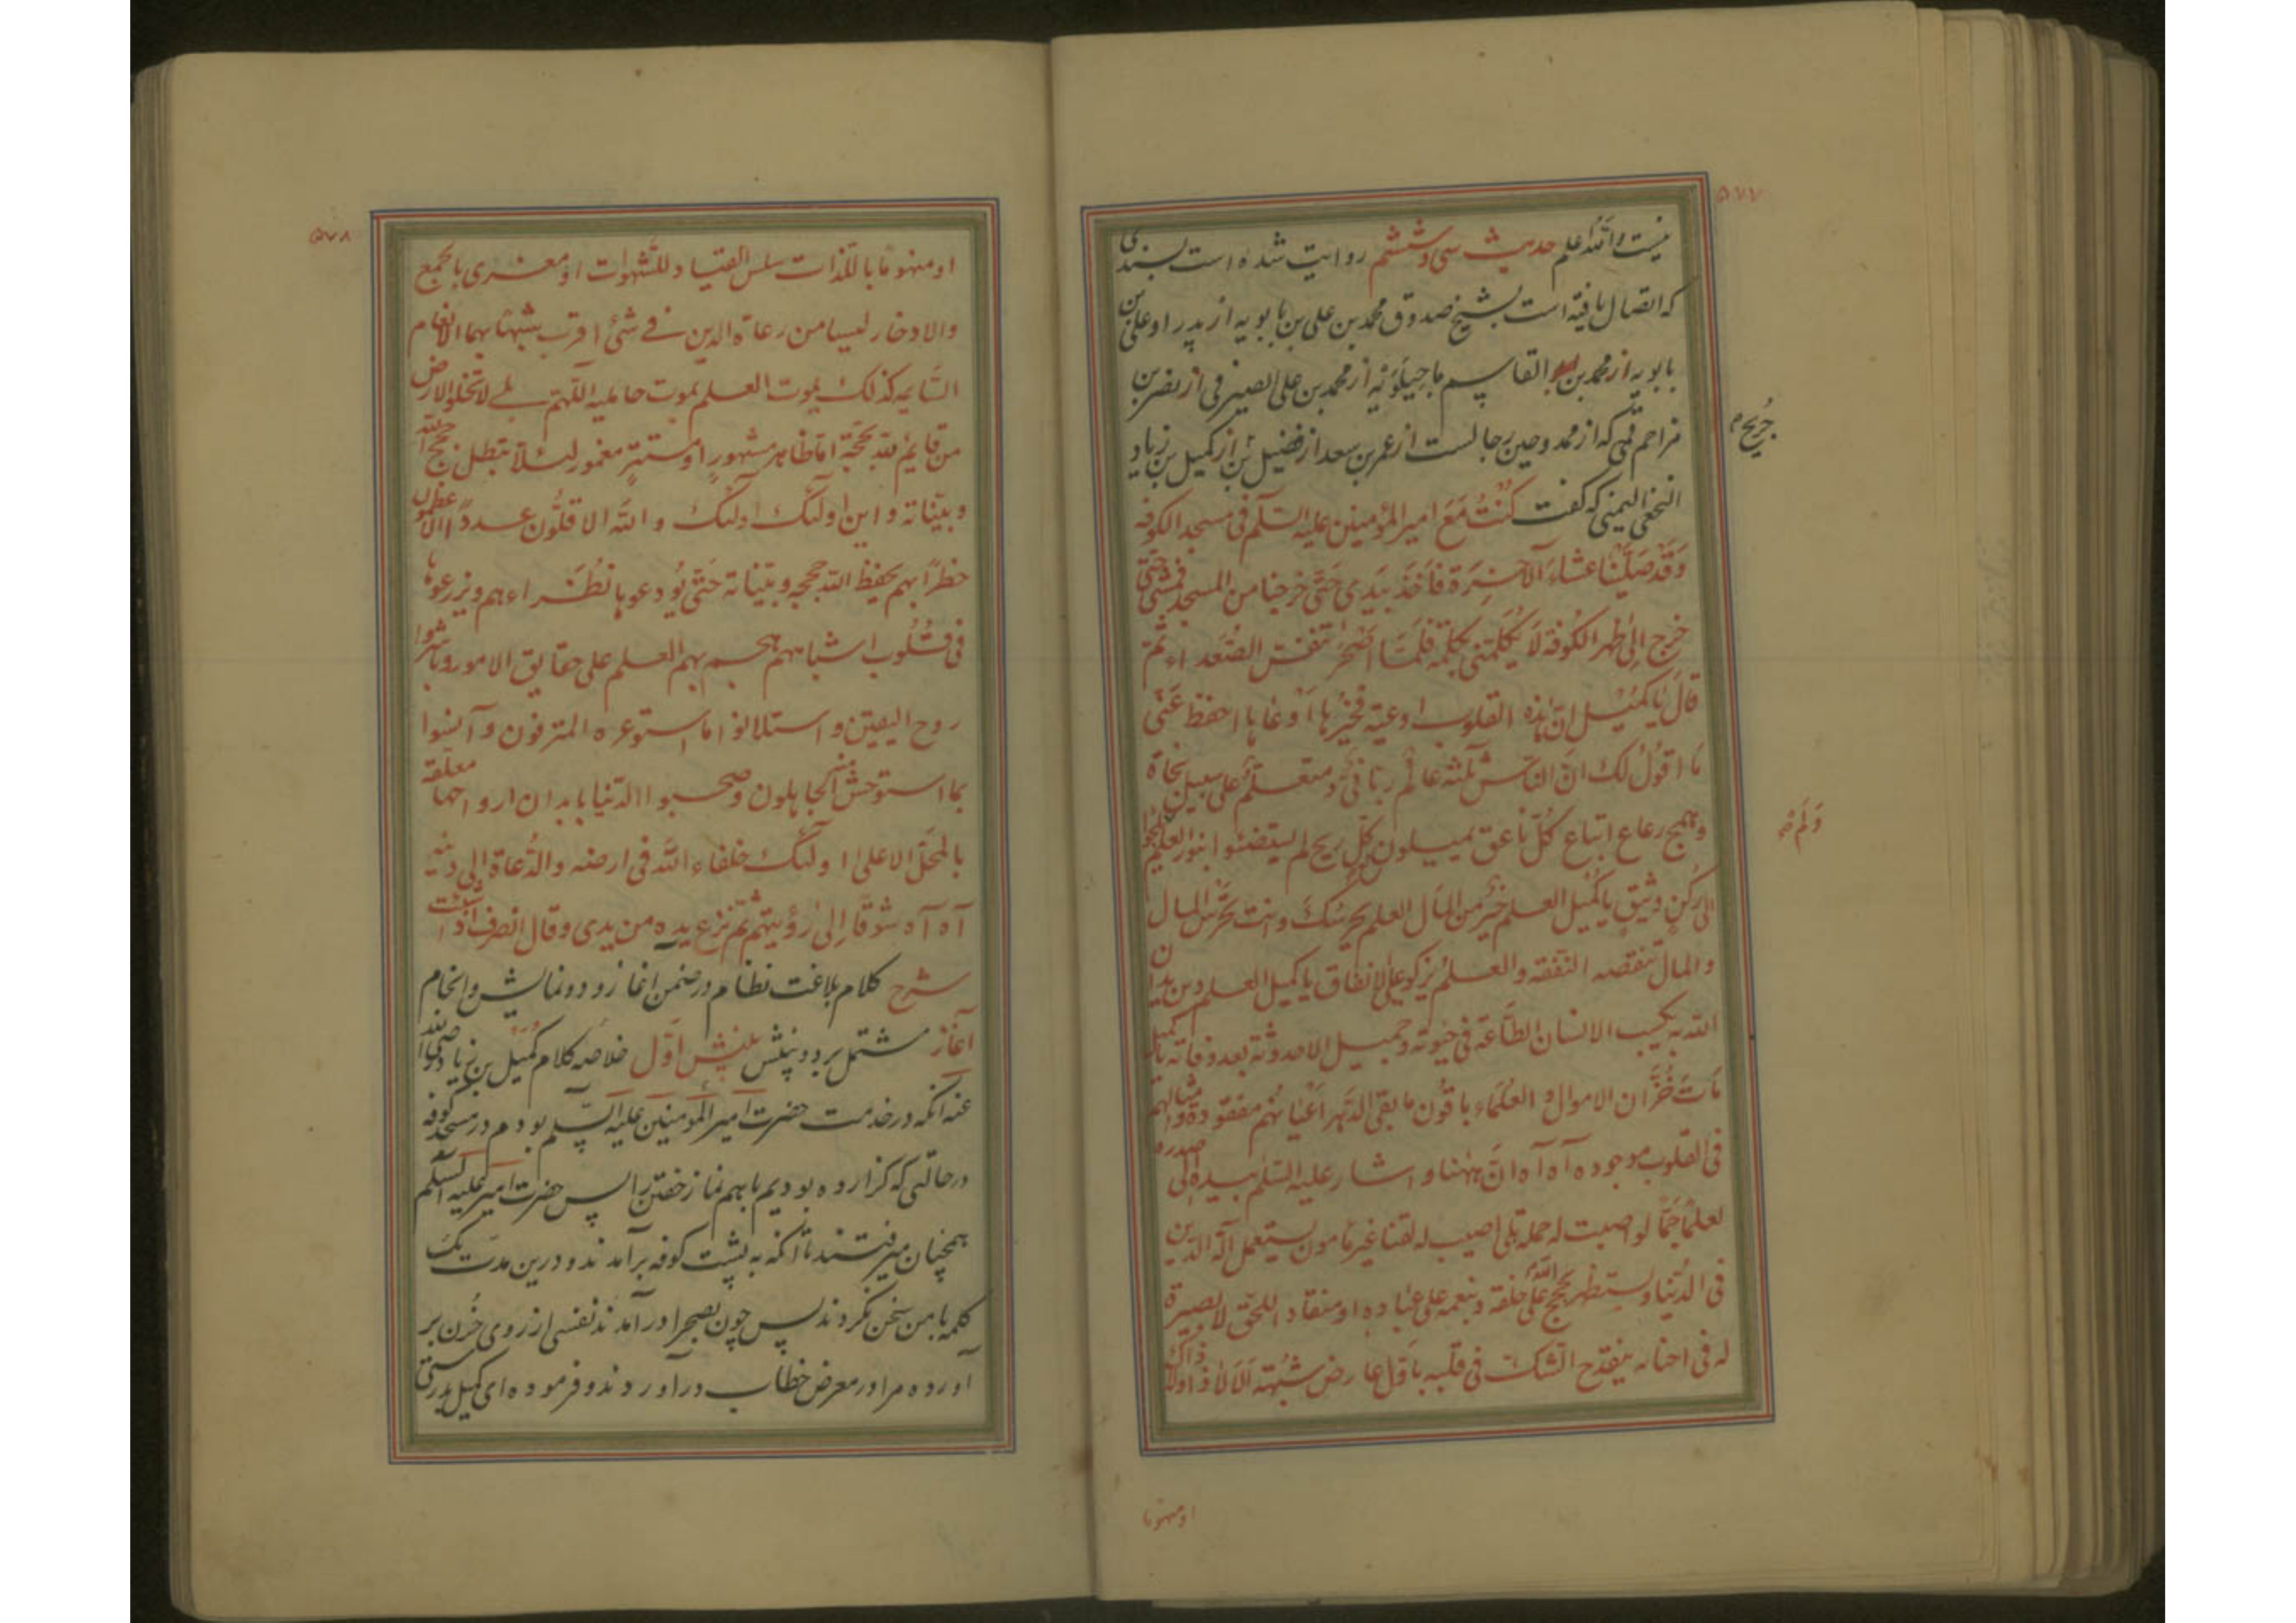 ۵۷۷
نیست والله اعلم حدیث سی و ششم روایت شده است بسندی
که اتصال یافته است بشیخ صدوق محمد بن علی بن بابویه از پدر او علی بن
بابویه از محمد بن القاسم ماجیلویه از محمد بن علی الصیرفی از نصر بن
مزاحم قمی که از ممدوحین رجالست از عمر بن سعد از فضیل بن از کمیل بن زیاد
جریح م
النخعی الیمنی که گفت کُنْتُ مَعَ امیر المؤمنین علیه السّلم فی مسجد الکوفه
وَقَدْ صَلَّیْنا عشاءَ الآخِرَة فاَخَذَ بِیَدی حَتّی خرجنا من المسجد فمشی حتی
خرج اِلیٰ ظهر الکُوفة لاَ یُکَلِّمنی بکلمة فلمّا اَصْحَرَ تنفّسَ الصُّعَداء ثم
قالَ یٰا کُمَیْل انّ هٰذه القلوب اوعیة فخَیْرُها اَوْعاها احفظ عَنّی
ما اقولُ لک انّ الناس ثلثة عالم ربّانیّ و متعلّم علی سبیل نجاة
وهمج رعاع اتباع کُلّ ناعق یمیلون کلّ ریح لم یستضئوا بنور العلم
وَلَم
الی رُکنٍ وثیقٍ یا کُمیل العلم خیر من المٰال العلم یحرسُکَ وانت تحرس المال
والمال تنقصه النّفقه والعلم یزکو علی الانفاق یا کمیل العلم دین یدان
الله به یکسب الانسان الطّاعة فی حیوته وجمیل الاحدوثة بعد وفاته یا کمیل
مَاتَ خُزّان الاموال والعُلماء باقُون ما بقی الدّهر اَعْیانُهم مفقودة وامثالهم
فی القلوب موجوده آه آه انّ هٰهنا واشار علیه السّلم بیده الی صدره
لعلمًا جَمًّا لو اصبت له حملة بلی اصیب له لقنا غیر مأمون یستعمل آلة الدّین
فی الدُّنیا ویستظهر بحجج الله علی خلقه وبنعمه علی عباده او منقادا للحقّ لا بصیرة
له فی احنائه ینقدح الشّک فی قلبه باوّل عارض شُبْهة اَلاَ لاٰ ذا ولا ذاک
او منهوما
۵۷۸
او منهومًا باللّذات سلس القیاد للشّهوات او مغری بالجمع
والادخار لیسا من رعاة الدین فی شئ اقرب شبهًا بهما الانعام
السّایمه کذلک یموت العلم بموت حاملیه اللّهم بلی لا تخلو الارض
من قایم لله بحُجّة امّا ظاهر مشهورٍ او مستترٍ مغمور لئلّا تبطل حجج الله
وبیّناته واین اولٓئک اولٓئک والله الاقلُّون عددًا الاعظمون
خطرًا بهم یحفظ الله حججه وبیّناته حَتّی یُودعوها نُظَراءهم ویزرعوها
فی قُلُوب اشباههم هجم بهم العلم علی حقایق الامور وباشروا
روح الیقین واستلانوا ما استوعره المترفون وآنسوا
بما استوحش منه الجاهلون وصحبوا الدّنیا بابدان ارواحها معلّقة
بالمحلّ الاعلیٰ اولٓئک خلفاء الله فی ارضه والدُّعاة الی دینه
آه آه شوقًا اِلیٰ رؤیتهم ثمّ نزع یده من یدی وقال انصرف اذا شئت
شرح کلام بلاغت نظام در ضمن اغاز و دو نمایش و انجام
آغاز مشتمل بر دو بینش بینش اوّل خلاصه کلام کُمَیْل بن زیاد رضی الله
عنه انکه در خدمت حضرت امیر المؤمنین علیه السّلم بودم در مسجد کوفه
در حالتی که گزارده بودیم باهم نماز خفتن را پس حضرت امیر علیه السّلم
همچنان میرفتند تا انکه به پشت کوفه برآمدند و درین مدّت یک
کلمه با من سخن نکردند پس چون بصحرا درآمدند نفسی از روی حُزن بر
آورده مرا در معرض خطاب درآوردند و فرموده ای کمیل بدرستی